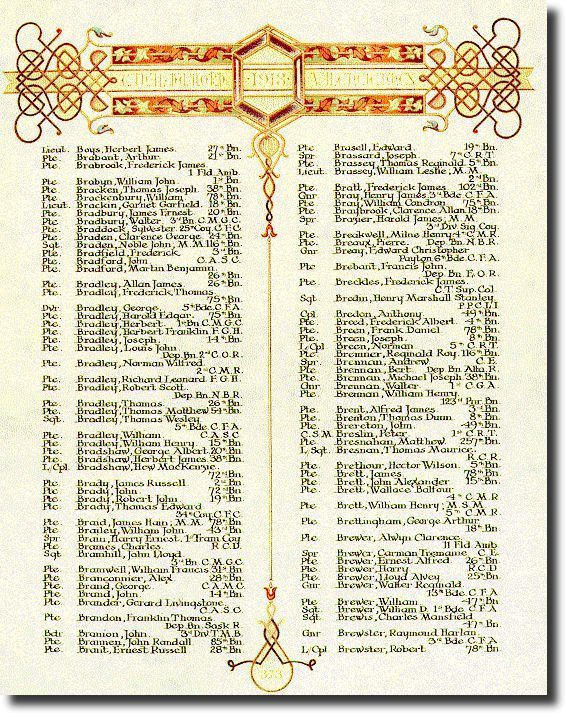 1918
Lieut. Boys, Herbert James. 27th Bn.
Pte. Brabant, Arthur. 21st Bn.
Pte. Brabrook, Frederick James.
1 Fld Amb.
Pte. Brabyn, William John 1st Bn.
Pte. Bracken, Thomas Joseph. 38th Bn.
Pte. Brackenbury, William. 78th Bn.
Lieut. Brackin, Garnet Garfield. 18th Bn.
Pte. Bradbury, James Ernest. 20th Bn.
Pte. Bradbury, Walter. 3rd Bn. C.M.G.C.
Pte. Braddock, Sylvester. 25th Coy. C.F.C.
Pte. Braden, Clarence George. 24th Bn.
Sgt. Braden, Noble John, M.M. 116th Bn.
Pte. Bradfield, Frederick. 3rd Bn.
Pte. Bradford, John C.A.S.C.
Pte. Bradford, Martin Benjamin.
26th Bn.
Pte. Bradley, Allan James 26th Bn.
Pte. Bradley, Frederick Thomas.
75th Bn.
Dvr. Bradley, George. 5th Bde. C.F.A.
Pte. Bradley, Harold Edgar. 75th Bn.
Pte. Bradley, Herbert. 1st Bn. C.M.G.C.
Pte. Bradley, Herbert Franklin F.G.H.
Pte. Bradley, Joseph. 14th Bn.
Pte. Bradley, Louis John
Dep. Bn. 2nd C.O.R.
Pte. Bradley, Norman Wilfred
2nd C.M.R.
Pte. Bradley, Richard Leonard F.G.H.
Pte. Bradley, Robert Scott.
Dep. Bn. N.B.R.
Pte. Bradley, Thomas 26th Bn.
Pte. Bradley, Thomas Matthew 54th Bn.
Sgt. Bradley, Thomas Wesley
5th Bde. C.F.A.
Pte. Bradley, William C.A.S.C.
Pte. Bradley, William Henry. 15th Bn.
Pte. Bradshaw, George Albert. 20th Bn.
Pte. Bradshaw, Herbert James. 38th Bn.
L/Cpl. Bradshaw, Hew MacKenzie.
72nd Bn.
Pte. Brady, James Russell 2nd Bn.
Pte. Brady, John 72nd Bn.
Pte. Brady, Robert John 19th Bn.
Pte. Brady, Thomas Edward
34th Coy. C.F.C.
Pte. Braid, James Hain; M.M. 78th Bn.
Pte. Brailey, William John 43rd Bn.
Spr. Brain, Harry Ernest. 1st Tram Coy
Pte. Brames, Charles R.C.D.
Sgt. Bramhill, John Lloyd.
3rd Bn. C.M.G.C.
Pte. Bramwell, William Francis 31st Bn.
Pte. Branconnier, Alex 28th Bn.
Pte. Brand, George C.A.M.C.
Pte. Brand, John 14th Bn.
Pte. Brander, Gerard Livingstone.
C.A.S.C.
Pte. Brandon, Franklin Thomas
Dep. Bn. Sask. R.
Bdr. Branion, John. 3rd Div. T.M.B.
Pte. Brannen, John Randall 85th Bn.
Pte. Brant, Ernest Russell 28th Bn.
Pte. Brasell, Edward 19th Bn.
Spr. Brassard, Joseph. 7th C.R.T.
Pte. Brassey, Thomas Reginald. 5th Bn.
Lieut. Brassey, William Leslie, M.M.
2nd Bn.
Pte. Bratt, Frederick James 102nd Bn.
Gnr. Bray, Henry James 3rd Bde. C.F.A.
Pte. Bray, William Condron 75th Bn.
Pte. Braybrook, Clarence Allan 18th Bn.
Spr. Brazier, Harold James; M.M.
3rd Div. Sig. Coy.
Pte. Breakwell, Milne Henry 4th C.M.R.
Pte. Breaux, Pierre. Dep. Bn. N.B.R.
Gnr. Breay, Edward Christopher
Payton 6th Bde. C.F.A.
Pte. Brebant, Francis John.
Dep. Bn. E.O.R.
Pte. Breckles, Frederick James.
C.T. Sup. Col.
Sgt. Bredin, Henry Marshall Stanley
P.P.C.L.I.
Cpl. Bredon, Anthony 44th Bn.
Pte. Breed, Frederick Albert. 4th Bn.
Pte. Breen, Frank Daniel 78th Bn.
Pte. Breen, Joseph 8th Bn.
L/Cpl. Breen, Norman 5th C.R.T.
Pte. Bremner, Reginald Roy. 116th Bn.
Spr. Brennan, Andrew C.E.
Pte. Brennan, Bert Dep. Bn. Alta. R.
Pte. Brennan, Michael Joseph 38th Bn.
Gnr. Brennan, Walter 1st C.G.A.
Pte. Brennan, William Henry.
123rd Pnr. Bn.
Pte. Brent, Alfred James 3rd Bn.
Pte. Brenton, Thomas Dunn 8th Bn.
Pte. Brereton, John 49th Bn.
C.S.M. Breslin, Peter 1st C.R.T.
Pte. Bresnahan, Matthew 257th Bn.
L. Sgt. Bresnan, Thomas Maurice.
R.C.R.
Pte. Brethour, Hector Wilson 5th Bn.
Pte. Brett, James 78th Bn.
Pte. Brett, John Alexander 15th Bn.
Pte. Brett, Wallace Balfour
4th C.M.R.
Pte. Brett, William Henry; M.S.M.
5th C.M.R.
Pte. Brettingham, George Arthur
18th Bn.
Pte. Brewer, Alwyn Clarence.
11 Fld Amb.
Spr. Brewer, Carman Tremaine C.E.
Pte. Brewer, Ernest Alfred 26th Bn.
Pte. Brewer, Harry R.C.D.
Pte. Brewer, Lloyd Alvey 25th Bn.
Gnr. Brewer, Walter Reginald
13th Bde. C.F.A.
Pte. Brewer, William 47th Bn.
Sgt. Brewer, William D. 1st Bde. C.F.A.
Sgt. Brewis, Charles Mansfield
47th Bn.
Gnr. Brewster, Raymond Harlan
3rd Bde. C.F.A.
L/Cpl. Brewster, Robert 78th Bn.
373